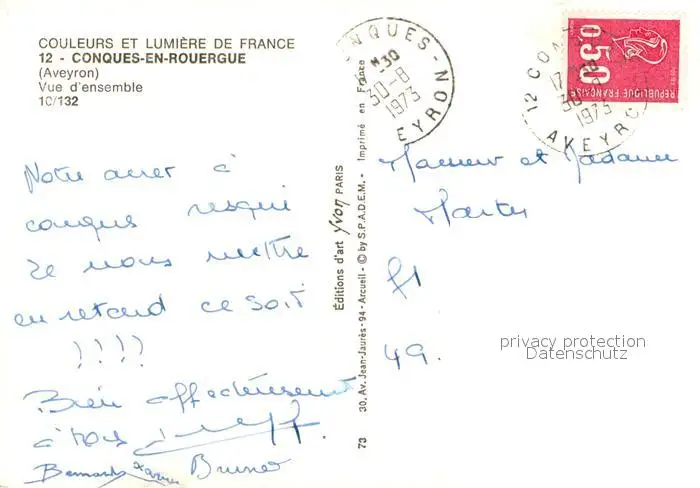 COULEURS ET LUMIÈRE DE FRANCE
12 - CONQUES-EN-ROUERGUE
(Aveyron)
Vue d'ensemble
10/132
Notre arret à
conques risque
de nous mettre
en retard ce soir
!!!!
Bien affectueusement
à tous
Bernard Xavier Bruno
Éditions d'art Yvon PARIS
30, Av. Jean-Jaurès - 94 - Arcueil - © by S.P.A.D.E.M. - Imprimé en France
73
CONQUES - AVEYRON
30
30-8
1973
12 CON
17
30-8
1973
AVEYRON
0,50
REPUBLIQUE FRANÇAISE
Monsieur et Madame
49.
privacy protection
Datenschutz